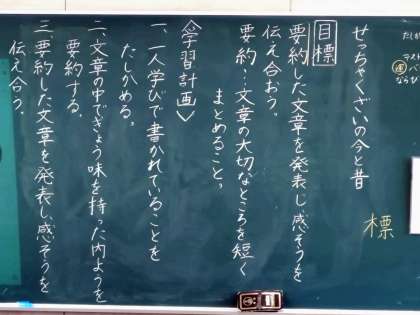 せっちゃくざいの今と昔
標
目標
要約した文章を発表し感そうを
伝え合おう。
要約：文章の大切なところを短く
まとめること。
〈学習計画〉
一、一人学びで書かれていることを
たしかめる。
二、文章の中できょう味を持った内ようを
要約する。
三、要約した文章を発表し、感そうを
伝え合う。